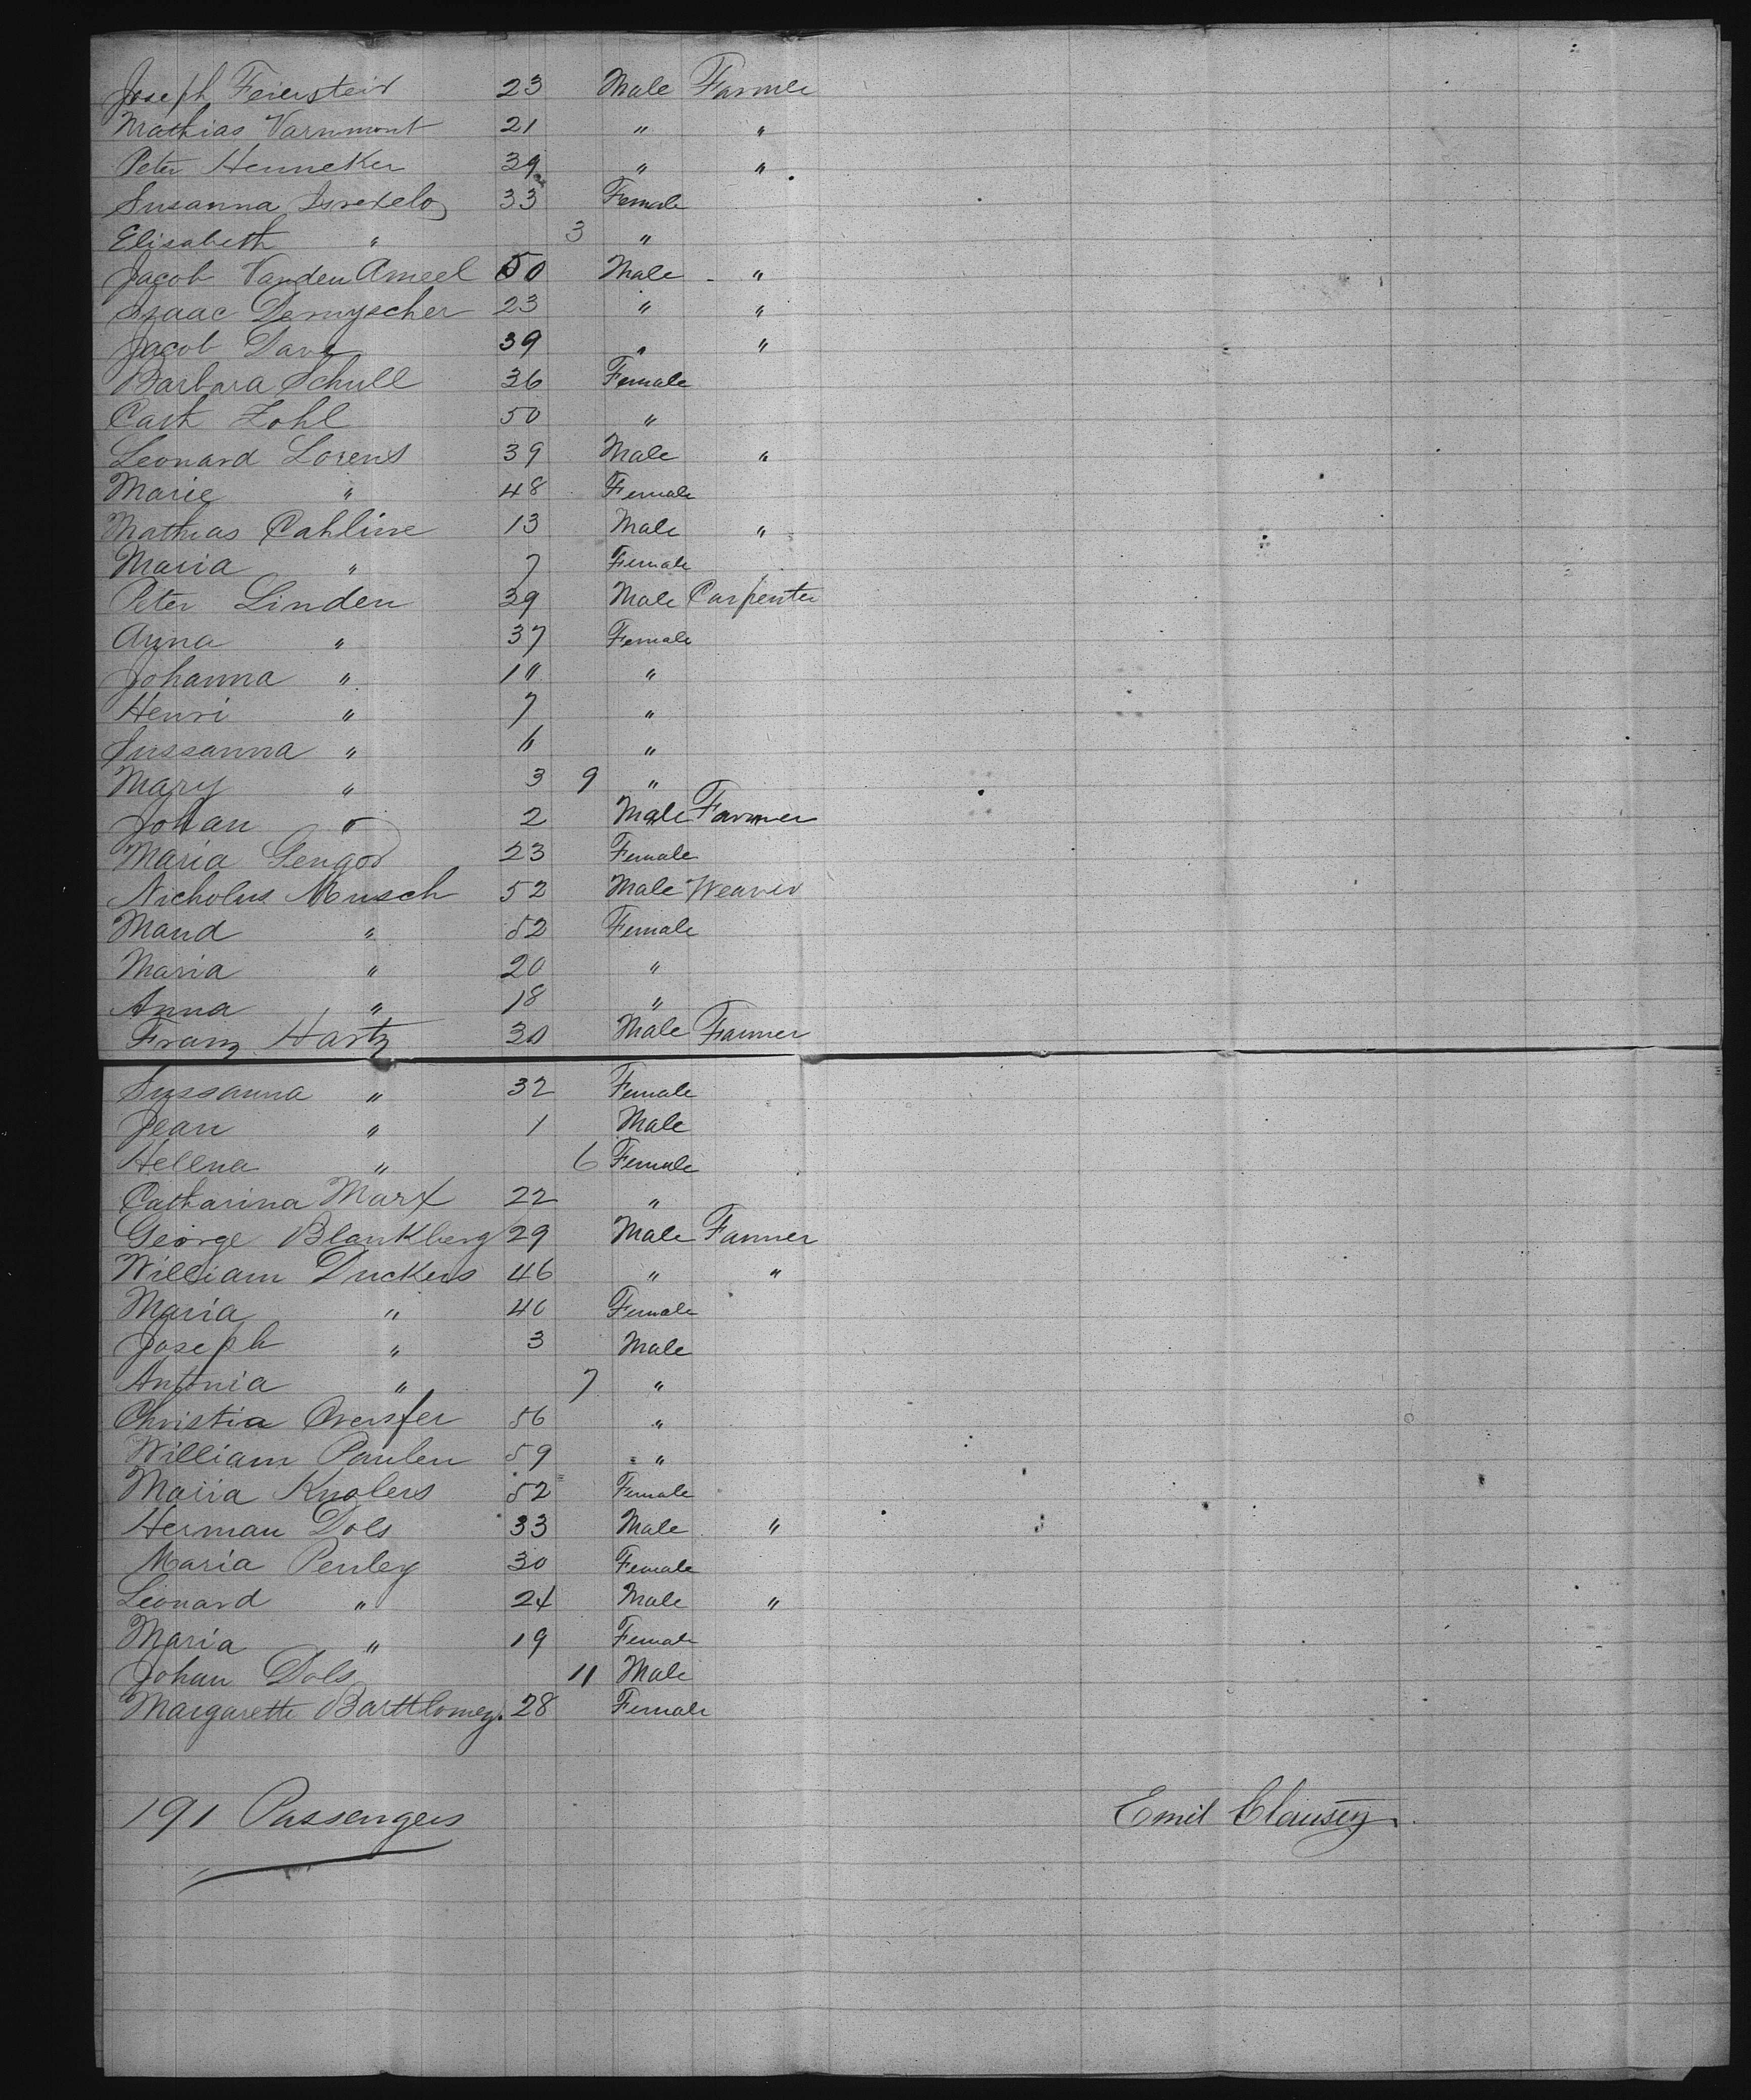 Joseph Feierstein 23 Male Farmer
Mathias Varnmont 21 " "
Peter Henneker 39 " "
Susanna 33 Female
Elisabeth " 3 "
Jacob Vanden Ameel 50 Male "
Isaac Demyscher 23 " "
Jacob Dave 39 " "
Barbara Schull 36 Female
Cath Zohl 50 "
Leonard Lorens 39 Male "
Marie " 48 Female
Mathias Cahline 13 Male "
Maria " 7 Female
Peter Linden 39 Male Carpenter
Anna " 37 Female
Johanna " 11 "
Henri " 7 "
Sussanna " "
Mary " 3 9 "
Johan " 2 Male Farmer
Maria Gengor 23 Female
Nicholus Musch 52 Male Weaver
Mand " 52 Female
Maria " 20 "
Anna " 18 "
Franz Hartz 30 Male Farmer
Sussanna " 32 Female
Jean " 1 Male
Hellna " 6 Female
Catharina Marx 22 "
George Blankberg 29 Male Farmer
William Duckers 46 " "
Maria " 40 Female
Joseph " 3 Male
Antonia " 7 "
Christia 56 "
William Paulen 59 "
Maria Knolers 52 Female
Herman Dols 33 Male "
Maria Penley 30 Female
Leonard " 24 Male "
Maria " 19 Female
Johan Dols 11 Male
Margarette Barttlomey. 28 Female
191 Passengers
Emil Clausen